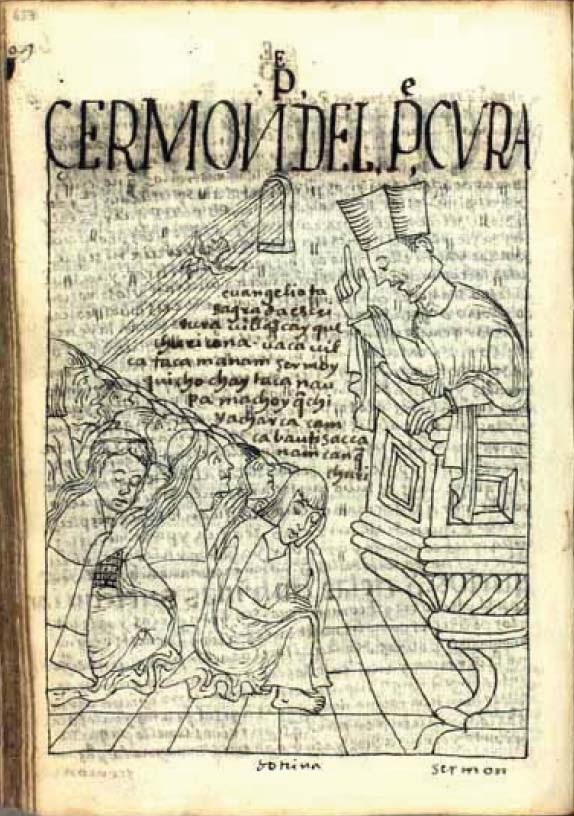 E
P.
CERMON DEL. Pe, CVRA
euangeliota
sagrada escri
tura uillascayque
churicona. uaca uil
ca taca manam seruiy
quicho chay taca nau
pa machoyq̃chi
yacharca cam
ca bautisacca
nam canq̃
churi
dotrina
sermon